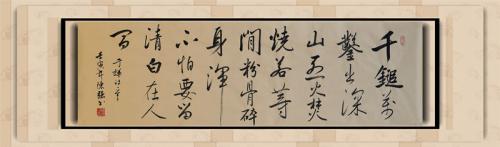 千鎚萬
鑿出深
山烈火焚
燒若等
閒粉骨碎
身渾
不怕要留
清白在人
間
于謙詩
壬寅年陳